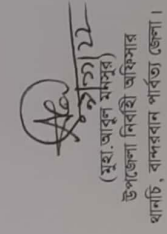 (মুহা.আবুল মনসুর)
উপজেলা নির্বাহী অফিসার
থানচি, বান্দরবান পার্বত্য জেলা।